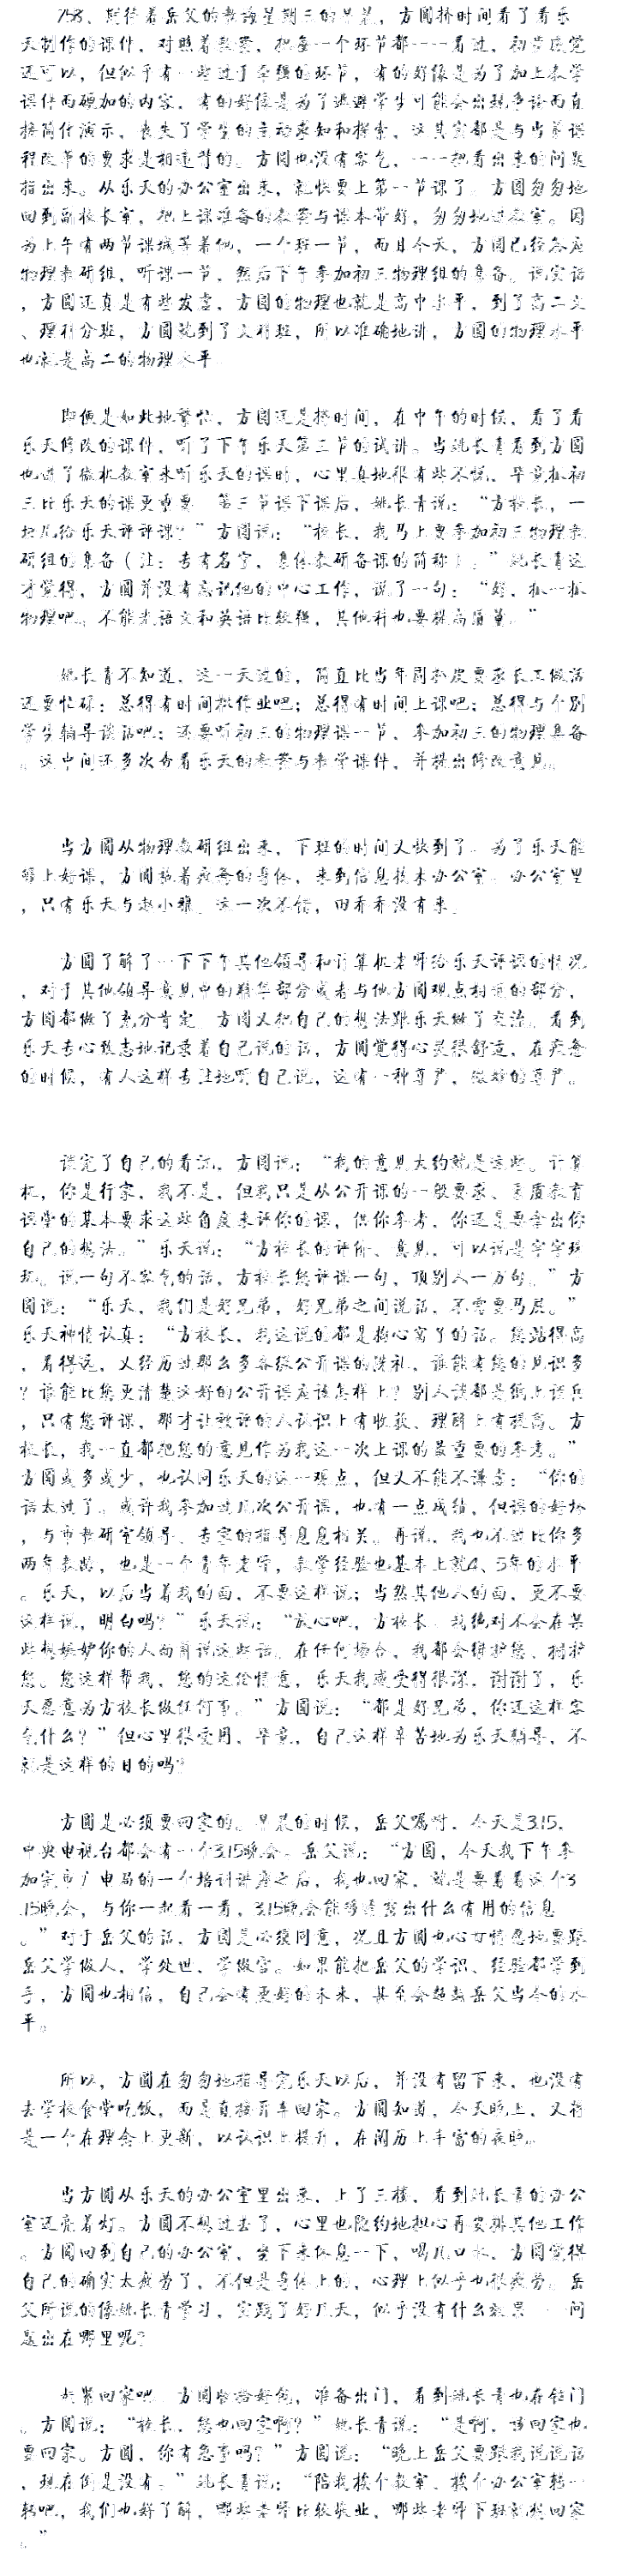 758、期待着岳父的教诲星期三的早晨，方圆挤时间看了看乐
天制作的课件，对照着教案，把每一个环节都一一看过，初步感觉
还可以，但似乎有一些过于牵强的环节，有的好像是为了加上教学
课件而硬加的内容，有的好像是为了逃避学生可能会出现争议而直
接简付演示，丧失了学生的主动求知和探索，这其实都是与当前课
程改革的要求是相违背的。方圆也没有客气，一一把看出来的问题
指出来。从乐天的办公室出来，就快要上第一节课了。方圆匆匆地
回到副校长室，把上课准备的教案与课本带好，匆匆地进教室。因
为上午有两节课城等着他，一个班一节，而且今天，方圆已经答应
物理教研组，听课一节，然后下午参加初三物理组的集备。说实话
，方圆还真是有些发虚，方圆的物理也就是高中水平，到了高二文
、理科分班，方圆就到了文科班，所以准确地讲，方圆的物理水平
也就是高二的物理水平。
即使是如此地繁忙，方圆还是挤时间，在中午的时候，看了看
乐天修改的课件，听了下午乐天第三节的试讲。当姚长青看到方圆
也进了微机教室来听乐天的课时，心里真地很有些不悦，毕竟抓初
三比乐天的课更重要。第三节课下课后，姚长青说：“方校长，一
块儿给乐天评评课？”方圆说：“校长，我马上要参加初三物理教
研组的集备（注：专有名字，集体教研备课的简称）。”姚长青这
才觉得，方圆并没有忘记他的中心工作，说了一句：“好，抓一抓
物理吧。不能光语文和英语比较强，其他科也要提高质量。”
姚长青不知道，这一天过的，简直比当年周扒皮要求长工做活
还要忙碌：总得有时间批作业吧；总得有时间上课吧；总得与个别
学生辅导谈话吧；还要听初三的物理课一节，参加初三的物理集备
。这中间还多次查看乐天的教案与教学课件，并提出修改意见。
当方圆从物理教研组出来，下班的时间又快到了。为了乐天能
够上好课，方圆拖着疲惫的身体，来到信息技术办公室。办公室里
，只有乐天与赵小雅。这一次不错，田乔乔没有来。
方圆了解了一下下午其他领导和计算机老师给乐天评课的情况
，对于其他领导意见中的精华部分或者与他方圆观点相近的部分，
方圆都做了充分肯定。方圆又把自己的想法跟乐天做了交流。看到
乐天专心致志地记录着自己说的话，方圆觉得心灵很舒适，在疲惫
的时候，有人这样专注地听自己说，这有一种尊严，微妙的尊严。
谈完了自己的看法，方圆说：“我的意见大约就是这些。计算
机，你是行家，我不是，但我只是从公开课的一般要求、素质教育
课堂的基本要求这些角度来评你的课，供你参考，你还是要拿出你
自己的想法。”乐天说：“方校长的评价、意见，可以说是字字珠
玑。说一句不客气的话，方校长您评课一句，顶别人一万句。”方
圆说：“乐天，我们是好兄弟，好兄弟之间说话，不需要马屁。”
乐天神情认真：“方校长，我这说的都是掏心窝子的话。您站得高
，看得远，又经历过那么多各级公开课的洗礼，谁能有您的见识多
？谁能比您更清楚这好的公开课应该怎样上？别人谈都是纸上谈兵
，只有您评课，那才让被评的人认识上有收获、理解上有提高。方
校长，我一直都把您的意见作为我这一次上课的最重要的参考。”
方圆或多或少，也认同乐天的这一观点，但又不能不谦虚：“你的
话太过了。或许我参加过几次公开课，也有一点成绩，但课的好坏
，与市教研室领导、专家的指导息息相关。再说，我也不过比你多
两年教龄，也是一个青年老师，教学经验也基本上就4、5年的水平
。乐天，以后当着我的面，不要这样说；当然其他人的面，更不要
这样说，明白吗？”乐天说：“放心吧，方校长，我绝对不会在某
些想嫉妒你的人面前说这些话。在任何场合，我都会维护您、拥护
您。您这样帮我，您的这份情意，乐天我感受得很深，谢谢了，乐
天愿意为方校长做任何事。”方圆说：“都是好兄弟，你还这样客
气什么？”但心里很受用，毕竟，自己这样辛苦地为乐天辅导，不
就是这样的目的吗？
方圆是必须要回家的。早晨的时候，岳父嘱咐，今天是3.15，
中央电视台都会有一个3.15晚会。岳父说：“方圆，今天我下午参
加完市广电局的一个培训讲座之后，我也回家，就是要看看这个3
.15晚会，与你一起看一看，3.15晚会能够透露出什么有用的信息
。”对于岳父的话，方圆是必须同意，况且方圆也心甘情愿地要跟
岳父学做人，学处世、学做官。如果能把岳父的学识、经验都学到
手，方圆也相信，自己会有更好的未来，甚至会超越岳父当今的水
平。
所以，方圆在匆匆地指导完乐天以后，并没有留下来，也没有
去学校食堂吃饭，而是直接开车回家。方圆知道，今天晚上，又将
是一个在理念上更新，以认识上提升，在阅历上丰富的夜晚。
当方圆从乐天的办公室里出来，上了三楼，看到姚长青的办公
室还亮着灯。方圆不想过去了，心里也隐约地担心再安排其他工作
。方圆回到自己的办公室，坐下来休息一下，喝几口水，方圆觉得
自己的确实太疲劳了，不但是身体上的，心理上似乎也很疲劳。岳
父所说的像姚长青学习，实践了好几天，似乎没有什么效果——问
题出在哪里呢？
赶紧回家吧。方圆收拾好包，准备出门，看到姚长青也在锁门
。方圆说：“校长，您也回家啊？”姚长青说：“是啊，该回家也
要回家。方圆，你有急事吗？”方圆说：“晚上岳父要跟我说说话
，现在倒是没有。”姚长青说：“陪我挨个教室、挨个办公室转一
转吧，我们也好了解，哪些老师比较敬业，哪些老师下班就想回家
。”